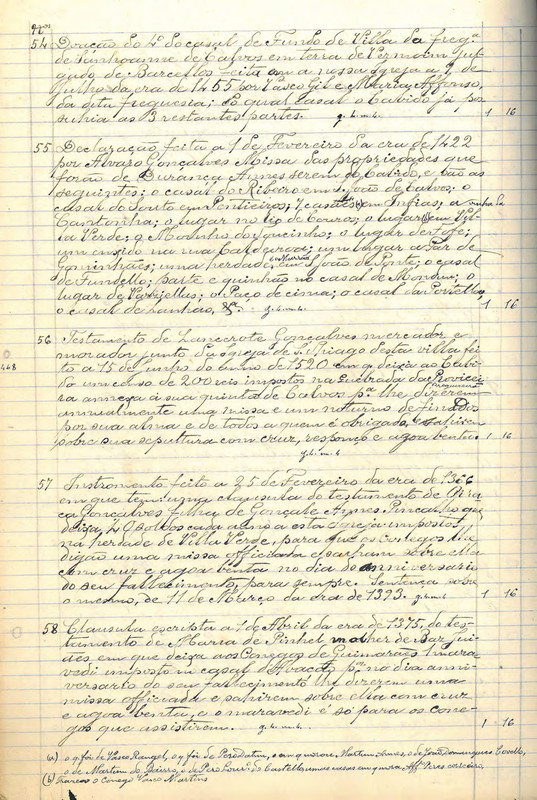 54 Doação do 4º do casal de Fundo de Villa da freg.ª
de Sanhoanne de Calvos em terra de Vermoim jul-
gado de Barcellos feita a nossa igreja a 9 de
Julho da era de 1455 por Vasco Gil e Maria Affonso,
da dita freguesia; do qual casal o Cabido já pos-
suhia as 3 restantes partes. g. 4. m. 4. 1 16
55 Declaração feita a 1 de Fevereiro da era de 1422
por Alvaro Gonçalves Missa das propriedades que
forão de Durança Annes serem do Cabido, e são as
seguintes: o casal do Ribeiro em S. João de Calvos; o
casal do Souto em Penticiros; 7 casaes (a) em Infias; a vinha de
Cantonha; o lugar no Rio de Couros; o lugar em Vil-
la Verde; o Moinho do Foucinho; o lugar de Fofe;
um enxido na rua Caldeiroa; um lugar a Par de
Gominhães; uma herdade em S. João de Ponte; o casal
de Fundello; parte e quinhão no casal de Mondim; o
lugar de Varziellas; o Paço de cima; o casal da Portella;
o casal de Lanhas, &ª. g. 4. m. 4. 1 16
56 Testamento de Lancerote Gonçalves mercador e
morador junto da egreja de S. Thiago desta villa fei-
to a 15 de junho do anno de 1520 em q. deixa ao Cabi-
do um censo de 200 reis impostos na Quebrada da
annexa á sua quinta de Calvos p.ª lhe dizerem
468
annualmente uma missa e um noturno de finados
por sua alma e de todos a quem é obrigado, e sahirem
sobre sua sepultura com cruz, responso e agoa benta. 1 16
g. 4. m. 4
57 Instromento feito a 25 de Fevereiro da era de 1366
em que tem uma clausula do testamento de
Gonçalves filha de Gonçalo Annes que
deixa 40 soldos cada anno a esta egreja impostos
na herdade de Villa Verde, para que os Conegos lhe
digão uma missa officiada e saiham sobre ella
com cruz e agoa benta no dia do anniversario
do seu fallecimento, para sempre. Sentença sobre
o mesmo, de 11 de Março da era de 1393. g. 4. m. 4. 1 16
58 Clausula escripta a 1 de Abril da era de 1375, do tes-
tamento de Maria de Pinhel molher de Bar Gui-
des em que deixa aos Conegos de Guimarães 1 mara-
vedi imposto m casal p.ª no dia anni-
versario do seu fallecimento lhe dizerem uma
missa officiada e sahirem sobre ella com cruz
e agoa benta, e o maravedi é só para os cone-
gos que assistirem. g. 4. m. 4. 1 16
(a) o q foi de Vasco Rangel, o q foi do Pero, e em q morou Martim Annes, o de João Domingues Covello,
o de Martim do Bairro, o de Pero e em q mora Aff.º Peres carreiro,
(b) o Conego Vasco Martins